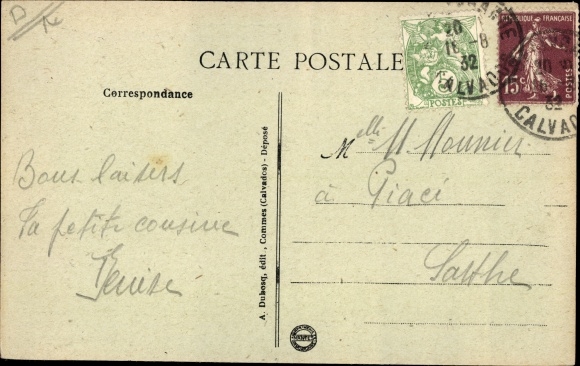 CARTE POSTALE
Correspondance
Bons baisers
Ta petite cousine
Denise
A. Dubosq, édit., Commes (Calvados) - Déposé
Melle M Mounier
à Piacé
Sarthe
5c
POSTES
20
18 - 8
32
CALVADOS
RÉPUBLIQUE FRANÇAISE
15c
POSTES
CALVADOS